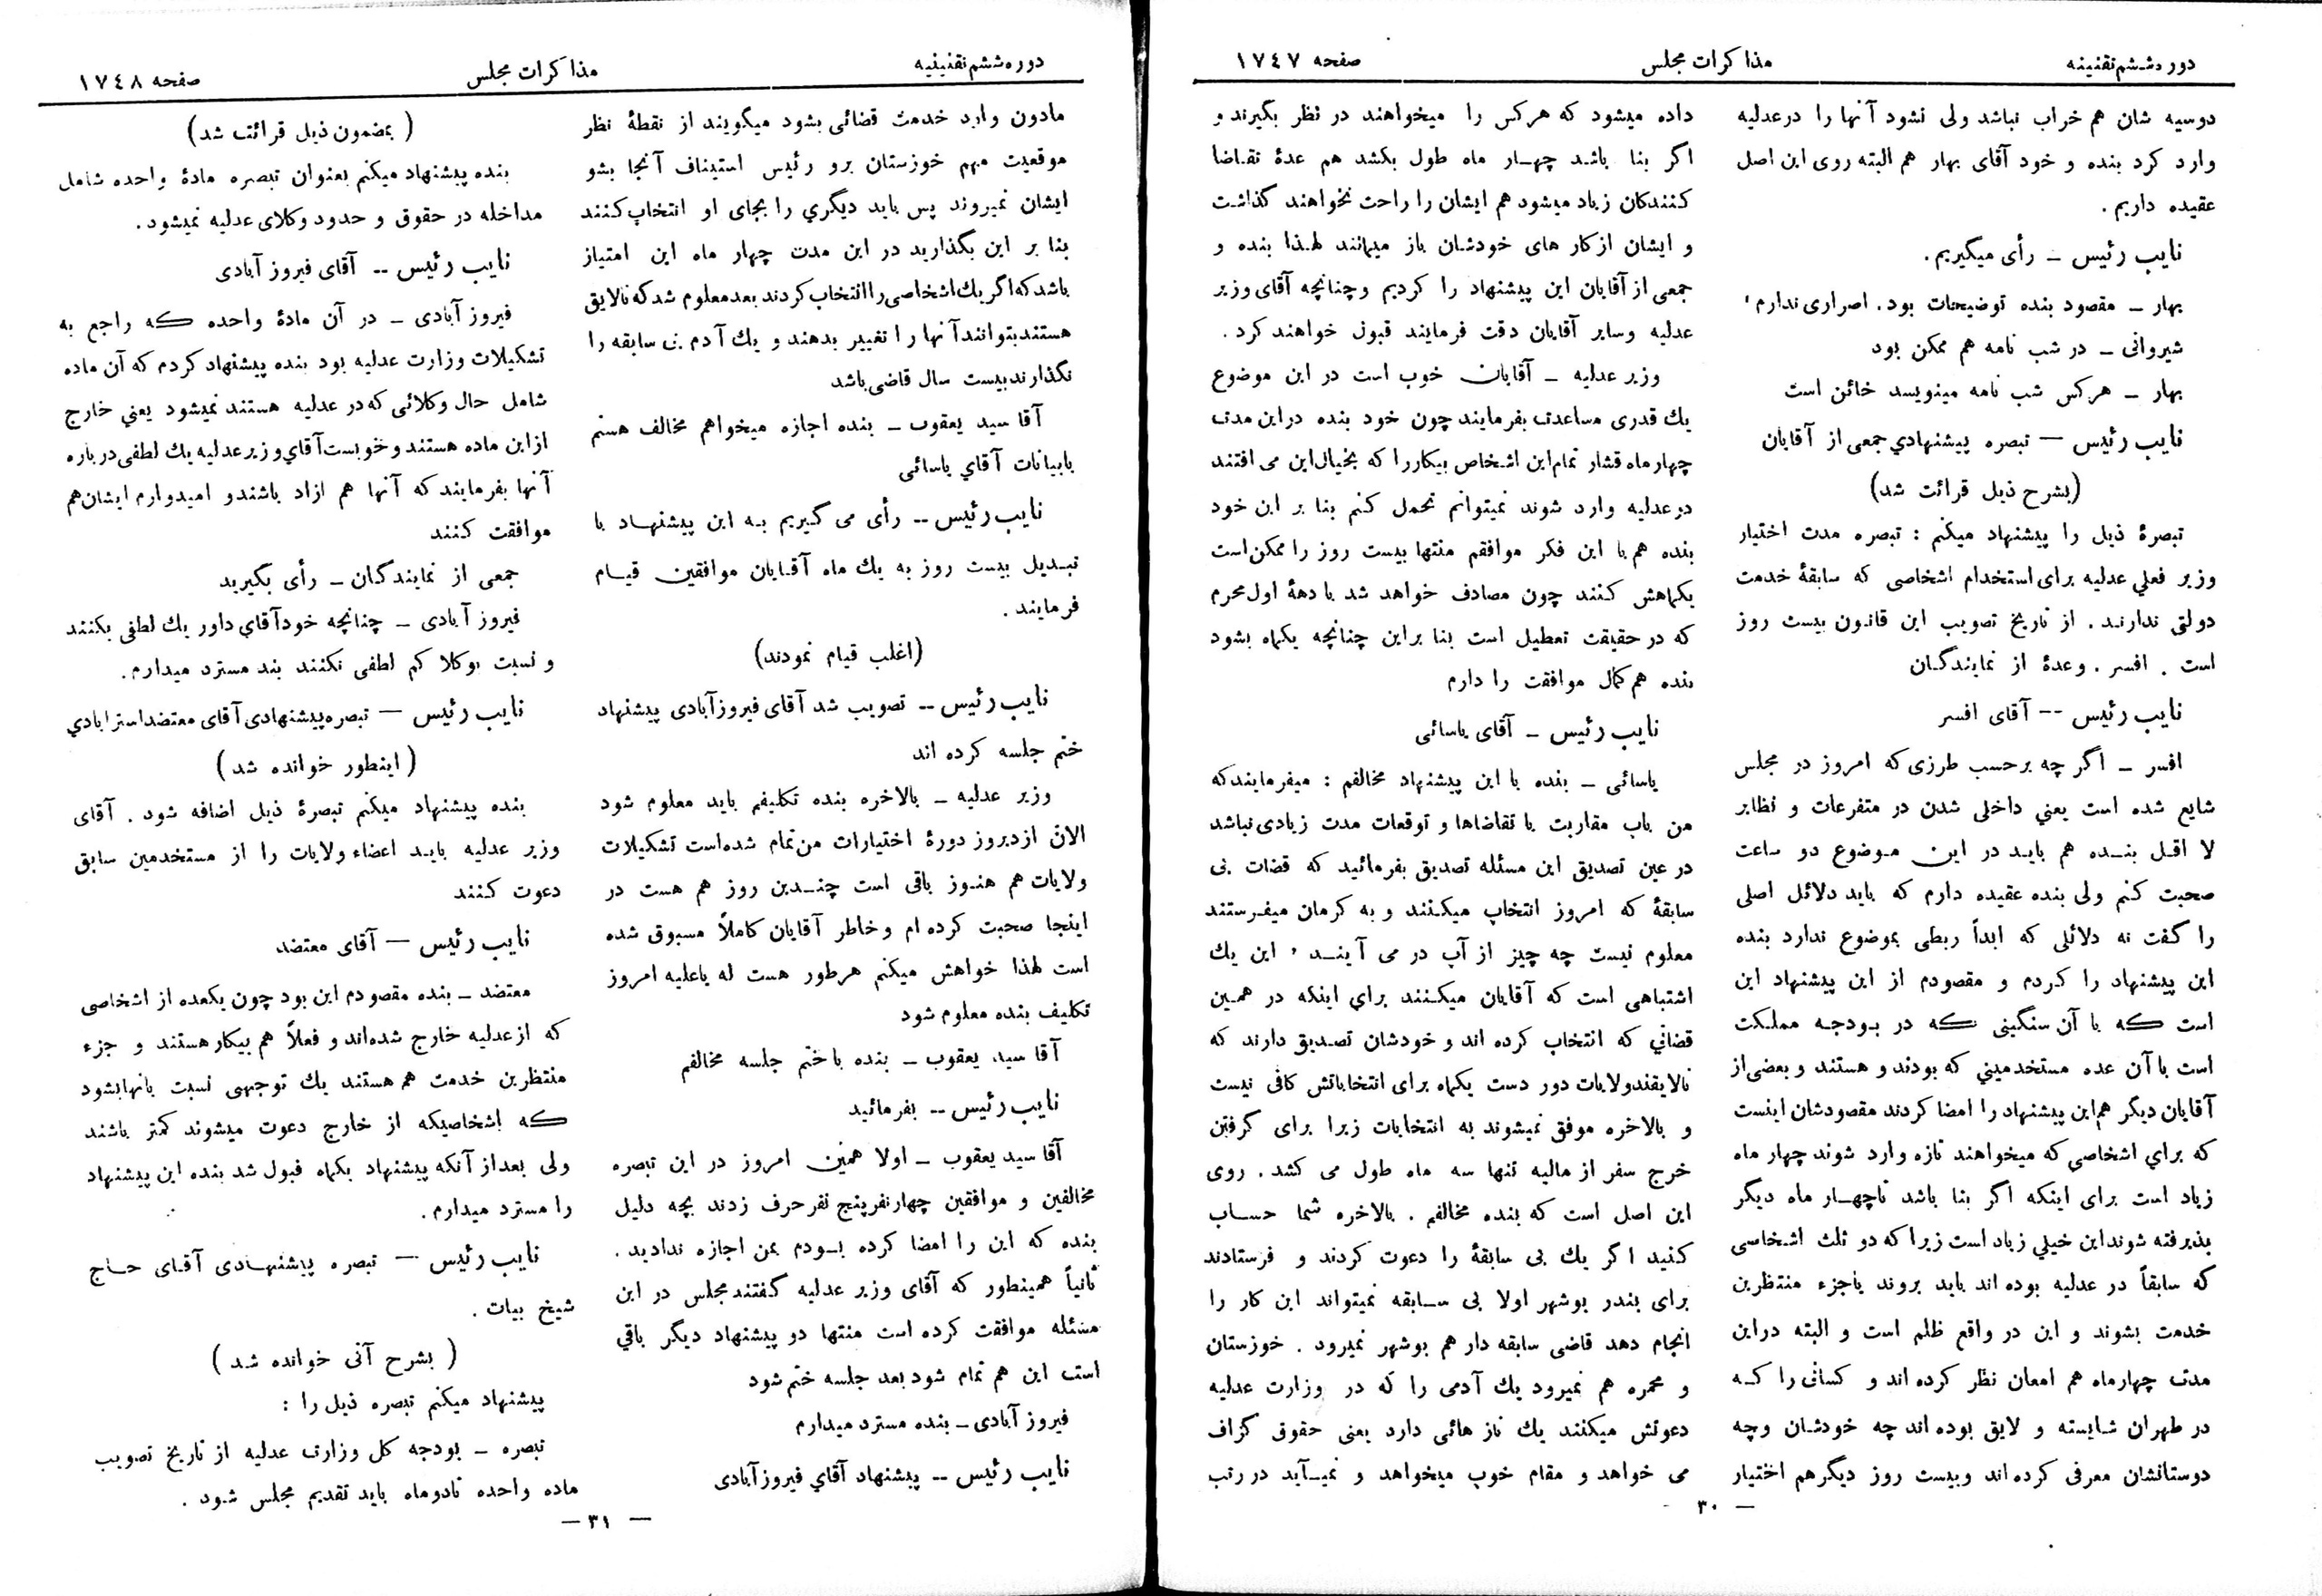 دوره ششم تقنینیه
مذاکرات مجلس
صفحه ۱۷٤۷
دوسیه شان هم خراب نباشد ولی نشود آنها را در عدلیه
وارد کرد بنده و خود آقای بهار هم البته روی این اصل
عقیده داریم .
نایب رئیس ــ رأی میگیریم .
بهار ــ مقصود بنده توضیحات بود . اصراری ندارم ،
شیروانی ــ در شب نامه هم ممکن بود
بهار ــ هر کس شب نامه مینویسد خائن است
نایب رئیس — تبصره پیشنهادي جمعی از آقایان
(بشرح ذیل قرائت شد)
تبصرهٔ ذیل را پیشنهاد میکنم : تبصره مدت اختیار
وزیر فعلي عدلیه برای استخدام اشخاصی که سابقهٔ خدمت
دولتی ندارند . از تاریخ تصویب این قانون بیست روز
است . افسر . وعدهٔ از نمایندگان
نایب رئیس -- آقای افسر
افسر ــ اگر چه برحسب طرزی که امروز در مجلس
شایع شده است یعني داخلی شدن در متفرعات و نظایر
لا اقل بنده هم باید در این موضوع دو ساعت
صحبت کنم ولی بنده عقیده دارم که باید دلائل اصلی
را گفت نه دلائلی که ابداً ربطی بموضوع ندارد بنده
این پیشنهاد را کردم و مقصودم از این پیشنهاد این
است که با آن سنگینی که در بودجه مملکت
است با آن عده مستخدمیني که بودند و هستند و بعضی از
آقایان دیگر هم این پیشنهاد را امضا کردند مقصودشان اینست
که براي اشخاصي که میخواهند تازه وارد شوند چهار ماه
زیاد است برای اینکه اگر بنا باشد تاچهار ماه دیگر
پذیرفته شوند این خیلي زیاد است زیرا که دو ثلث اشخاسی
که سابقاً در عدلیه بوده اند باید بروند یاجزء منتظرین
خدمت بشوند و این در واقع ظلم است و البته دراین
مدت چهارماه هم امعان نظر کرده اند و کسانی را که
در طهران شایسته و لایق بوده اند چه خودشان وچه
دوستانشان معرفی کرده اند وبیست روز دیگر هم اختیار
داده میشود که هر کس را میخواهند در نظر بگیرند و
اگر بنا باشد چهار ماه طول بکشد هم عدهٔ تقاضا
کنندگان زیاد میشود هم ایشان را راحت نخواهند گذاشت
و ایشان از کار های خودشان باز میمانند لهذا بنده و
جمعی از آقایان این پیشنهاد را کردیم و چنانچه آقای وزیر
عدلیه وسایر آقایان دقت فرمایند قبول خواهند کرد .
وزیر عدلیه ــ آقایان خوب است در این موضوع
یك قدری مساعدت بفرمایند چون خود بنده دراین مدت
چهار ماه فشار تمام این اشخاص بیکاررا که بخیال این می افتند
در عدلیه وارد شوند نمیتوانم تحمل کنم بنا بر این خود
بنده هم با این فکر موافقم منتها بیست روز را ممکن است
یکماهش کنند چون مصادف خواهد شد با دههٔ اول محرم
که در حقیقت تعطیل است بنا براین چنانچه یکماه بشود
بنده هم کمال موافقت را دارم
نایب رئیس ــ آقای یاسائی
یاسائی ــ بنده با این پیشنهاد مخالفم : میفرمایند که
من باب مقاربت با تقاضاها و توقعات مدت زیادی نباشد
در عین تصدیق این مسئله تصدیق بفرمائید که قضات بی
سابقهٔ که امروز انتخاب میکنند و به کرمان میفرستند
معلوم نیست چه چیز از آب در می آیند ، این یك
اشتباهی است که آقایان میکنند براي اینکه در همین
قضاتي که انتخاب کرده اند و خودشان تصدیق دارند که
نالایقند ولایات دور دست یکماه برای انتخاباتش کافی نیست
و بالاخره موفق نمیشوند به انتخابات زیرا برای گرفتن
خرج سفر از مالیه تنها سه ماه طول می کشد . روی
این اصل است که بنده مخالفم . بالاخره شما حساب
کنید اگر یك بی سابقهٔ را دعوت کردند و فرستادند
برای بندر بوشهر اولا بی سابقه نمیتواند این کار را
انجام دهد قاضی سابقه دار هم بوشهر نمیرود . خوزستان
و محمره هم نمیرود یك آدمی را که در وزارت عدلیه
دعوتش میکنند یك ناز هائی دارد یعنی حقوق گزاف
می خواهد و مقام خوب میخواهد و نمیآید در رتب
— ۳۰ -
دوره ششم تقنینیه
مذاکرات مجلس
صفحه ۱۷٤۸
مادون وارد خدمت قضائی بشود میگویند از نقطهٔ نظر
موقعیت مهم خوزستان برو رئیس استیناف آنجا بشو
ایشان نمیروند پس باید دیگري را بجای او انتخاب کنند
بنا بر این بگذارید در این مدت چهار ماه این امتیاز
باشد که اگر یك اشخاصی را انتخاب کردند بعد معلوم شد که نالایق
هستند بتوانند آنها را تغییر بدهند و یك آدم بی سابقه را
نگذارند بیست سال قاضی باشد
آقا سید یعقوب ــ بنده اجازه میخواهم مخالف هستم
بابیانات آقاي یاسائی
نایب رئیس -- رأی می گیریم به این پیشنهاد با
تبدیل بیست روز به یك ماه آقایان موافقین قیام
فرمایند .
(اغلب قیام نمودند)
نایب رئیس -- تصویب شد آقای فیروز آبادی پیشنهاد
ختم جلسه کرده اند
وزیر عدلیه ــ بالاخره بنده تکلیفم باید معلوم شود
الان از دیروز دورهٔ اختیارات من تمام شده است تشکیلات
ولایات هم هنوز باقی است چندین روز هم هست در
اینجا صحبت کرده ام و خاطر آقایان کاملاً مسبوق شده
است لهذا خواهش میکنم هر طور هست له یاعلیه امروز
تکلیف بنده معلوم شود
آقا سید یعقوب ــ بنده با ختم جلسه مخالفم
نایب رئیس -- بفرمائید
آقا سید یعقوب ــ اولا همین امروز در این تبصره
مخالفین و موافقین چهار نفر پنج نفر حرف زدند بچه دلیل
بنده که این را امضا کرده بودم بمن اجازه ندادید .
ثانیاً همینطور که آقای وزیر عدلیه گفتند مجلس در این
مسئله موافقت کرده است منتها دو پیشنهاد دیگر باقي
است این هم تمام شود بعد جلسه ختم شود
فیروز آبادی ــ بنده مسترد میدارم
نایب رئیس -- پیشنهاد آقاي فیروز آبادی
( بمضمون ذیل قرائت شد)
بنده پیشنهاد میکنم بعنوان تبصره مادهٔ واحده شامل
مداخله در حقوق و حدود وکلای عدلیه نمیشود .
نایب رئیس -- آقای فیروز آبادی
فیروز آبادی ــ در آن مادهٔ واحده که راجع به
تشکیلات وزارت عدلیه بود بنده پیشنهاد کردم که آن ماده
شامل حال وکلائی که در عدلیه هستند نمیشود یعني خارج
از این ماده هستند و خوبست آقاي وزیر عدلیه یك لطفی درباره
آنها بفرمایند که آنها هم ازاد باشند و امیدوارم ایشان هم
موافقت کنند
جمعی از نمایندگان ــ رأی بگیرید
فیروز آبادی ــ چنانچه خود آقاي داور یك لطفی بکنند
و نسبت بوکلا کم لطفی نکنند بند مسترد میدارم .
نایب رئیس — تبصره پیشنهادی آقای معتضد استرابادي
( اینطور خوانده شد )
بنده پیشنهاد میکنم تبصرهٔ ذیل اضافه شود . آقای
وزیر عدلیه باید اعضاء ولایات را از مستخدمین سابق
دعوت کنند
نایب رئیس — آقای معتضد
معتضد ــ بنده مقصودم این بود چون یکعده از اشخاصی
که از عدلیه خارج شده اند و فعلاً هم بیکار هستند و جزء
منتظرین خدمت هم هستند یك توجهی نسبت بانها بشود
که اشخاصیکه از خارج دعوت میشوند کمتر باشند
ولی بعد از آنکه پیشنهاد یکماه قبول شد بنده این پیشنهاد
را مسترد میدارم .
نایب رئیس — تبصره پیشنهادی آقای حاج
شیخ بیات .
( بشرح آتی خوانده شد )
پیشنهاد میکنم تبصره ذیل را :
تبصره ــ بودجه کل وزارت عدلیه از تاریخ تصویب
ماده واحده تادوماه باید تقدیم مجلس شود .
— ۳۱ —